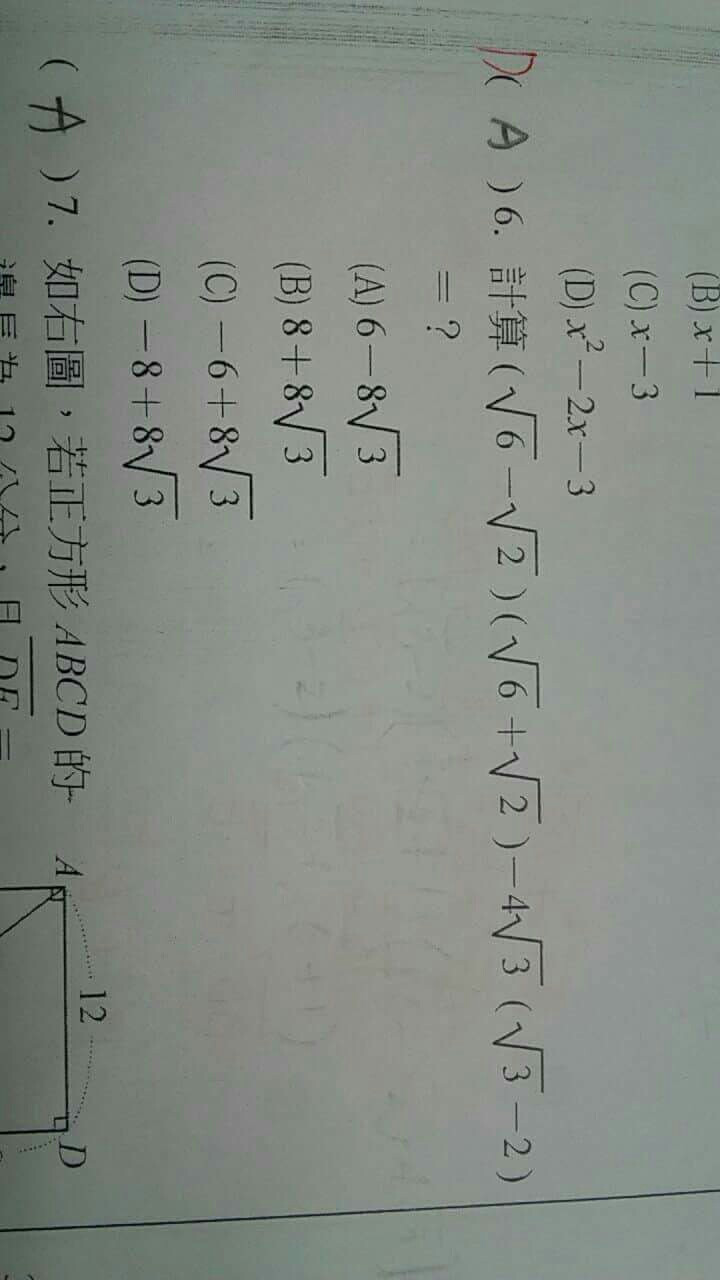 (B) x+1
(C) x−3
(D) x²−2x−3
D( A )6. 計算(√6−√2)(√6+√2)−4√3(√3−2)
=?
(A) 6−8√3
(B) 8+8√3
(C) −6+8√3
(D) −8+8√3
( A )7. 如右圖，若正方形ABCD的
邊長為12公分，且DE=
A
12
D